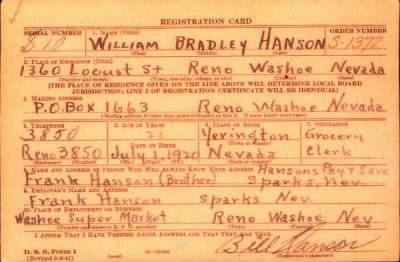 REGISTRATION CARD
SERIAL NUMBER 1. NAME (Print) ORDER NUMBER
S 10 WILLIAM BRADLEY HANSON S-1372
2. PLACE OF RESIDENCE (Print)
1360 Locust St Reno Washoe Nevada
(Number and street) (Town, township, village, or city) (County) (State)
[THE PLACE OF RESIDENCE GIVEN ON THE LINE ABOVE WILL DETERMINE LOCAL BOARD
JURISDICTION; LINE 2 OF REGISTRATION CERTIFICATE WILL BE IDENTICAL]
3. MAILING ADDRESS
P.O. Box 1663 Reno Washoe Nevada
[Mailing address if other than place indicated on line 2. If same insert word same]
4. TELEPHONE 5. AGE IN YEARS 6. PLACE OF BIRTH 7. OCCUPATION
3850 21 Yerington Grocery
DATE OF BIRTH (Town or county)
Reno 3850 July 1, 1920 Nevada Clerk
(Exchange) (Number) (Mo.) (Day) (Yr.) (State or country)
8. NAME AND ADDRESS OF PERSON WHO WILL ALWAYS KNOW YOUR ADDRESS Hansons Pay & Save
Frank Hanson (Brother) Sparks, Nev.
9. EMPLOYER'S NAME AND ADDRESS
Frank Hanson Sparks Nev.
10. PLACE OF EMPLOYMENT OR BUSINESS
Washoe Super Market Reno Washoe Nev.
(Number and street or R. F. D. number) (Town) (County) (State)
I AFFIRM THAT I HAVE VERIFIED ABOVE ANSWERS AND THAT THEY ARE TRUE.
D. S. S. Form 1
Bill Hanson